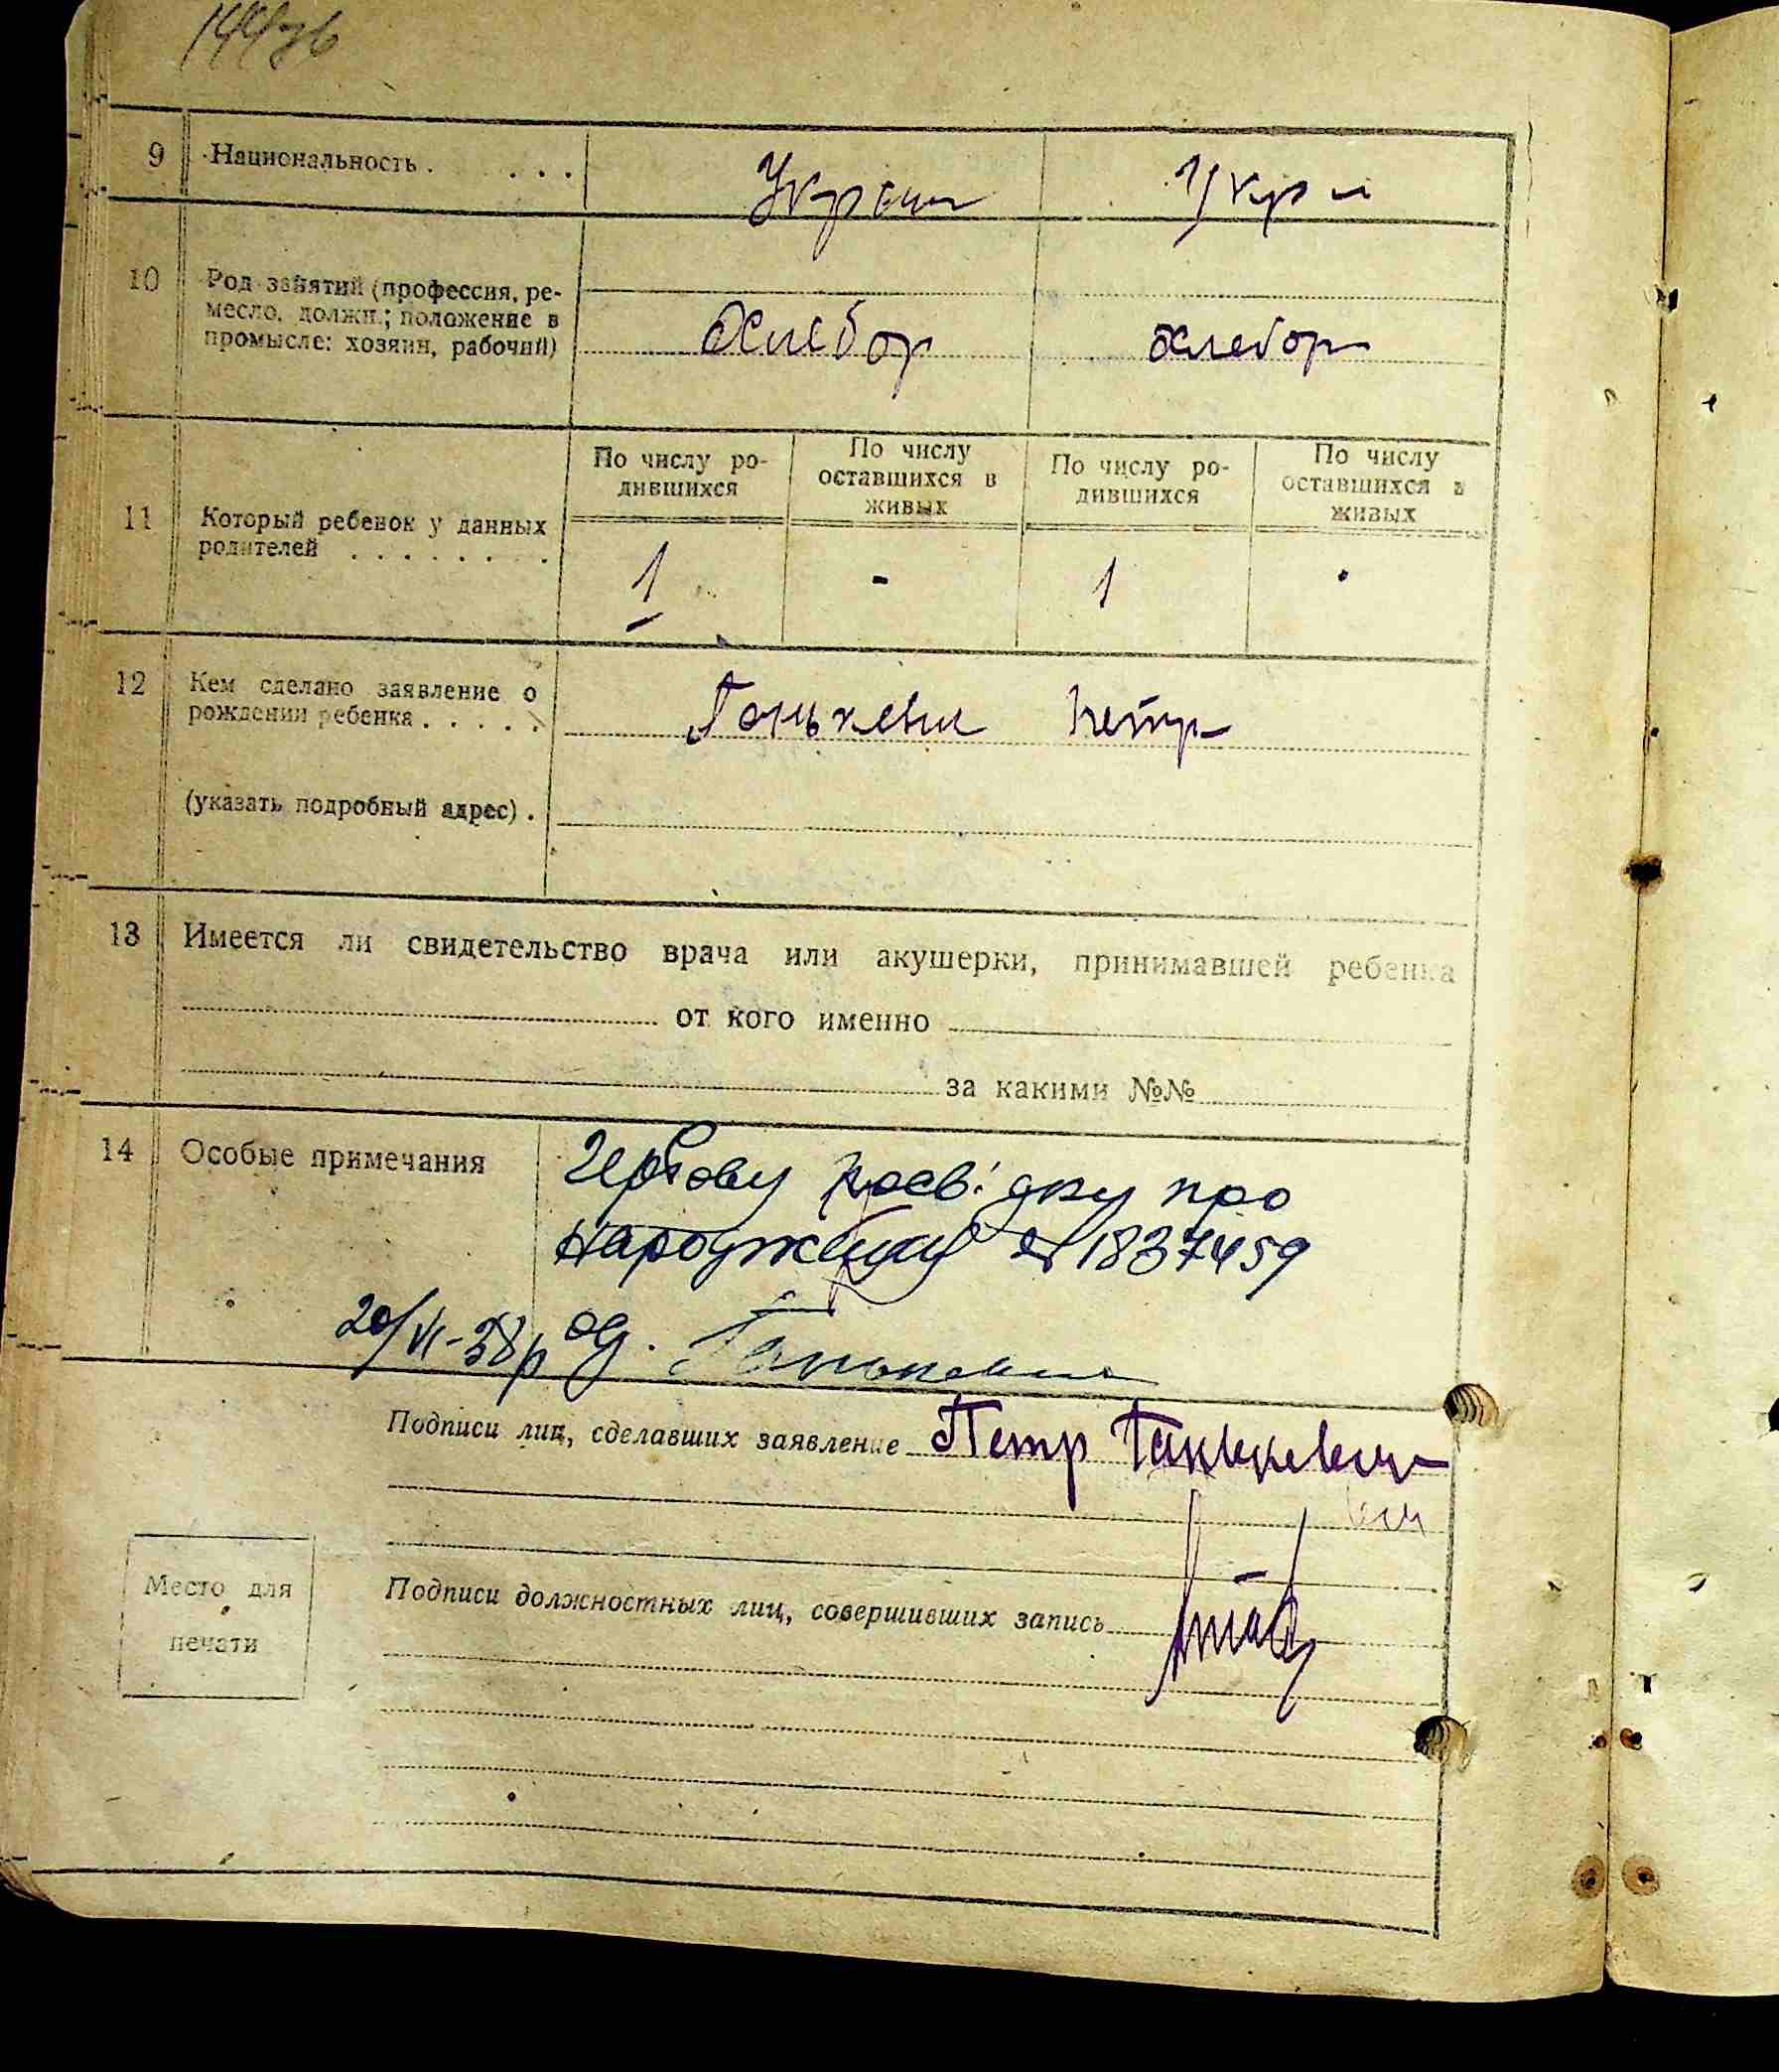 144зв
9 Национальность . . . . Украин Укр
10 Род занятий (профессия, ре-
месло, должн.; положение в
промысле: хозяин, рабочий)
хлебор хлебор
По числу ро-
дившихся
По числу
оставшихся в
живых
По числу ро-
дившихся
По числу
оставшихся в
живых
11 Который ребенок у данных
родителей . . . . . . . .
1 - 1 -
12 Кем сделано заявление о
рождении ребенка . . . . .
Ганькевич Петр
(указать подробный адрес) .
13 Имеется ли свидетельство врача или акушерки, принимавшей ребенка
от кого именно
за какими №№
14 Особые примечания
Гербову посвідку про
народження № 1837459
20/VI-38р од. Ганькевич
Подписи лиц, сделавших заявление Петр Ганькевич
Подписи должностных лиц, совершивших запись
Место для
печати